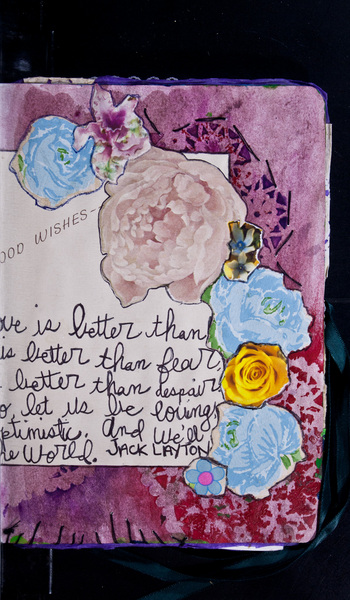 OOD WISHES-
ove is better than
is better than fear,
better than despair
o, let us be loving,
ptimistic, and we'll
he world. JACK LAYTON